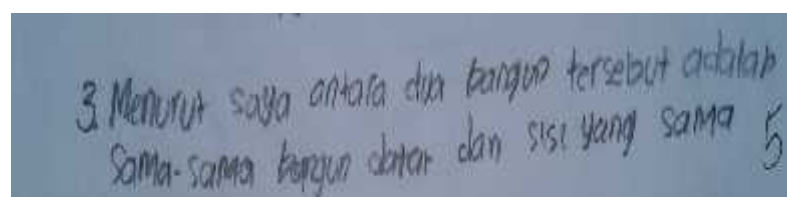 3. Menurut saya antara dua bangun tersebut adalah
Sama-sama bangun datar dan sisi yang sama 5